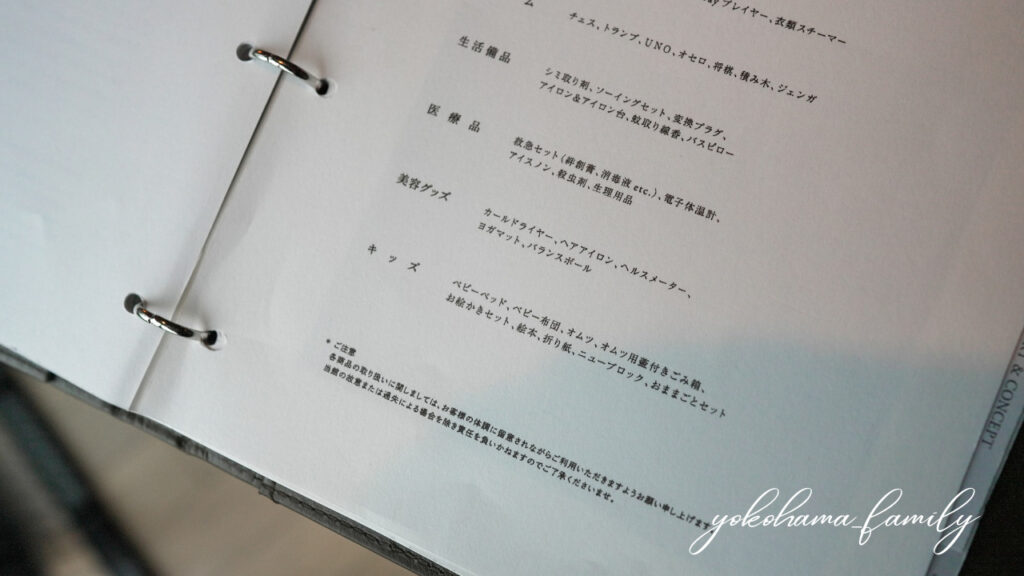 プレイヤー、衣類スチーマー
ム
チェス、トランプ、UNO、オセロ、将棋、積み木、ジェンガ
生活備品
シミ取り剤、ソーイングセット、変換プラグ、
アイロン&アイロン台、蚊取り線香、バスピロー
医療品
救急セット（絆創膏、消毒液 etc.）、電子体温計、
アイスノン、殺虫剤、生理用品
美容グッズ
カールドライヤー、ヘアアイロン、ヘルスメーター、
ヨガマット、バランスボール
キッズ
ベビーベッド、ベビー布団、オムツ、オムツ用蓋付きごみ箱、
お絵かきセット、絵本、折り紙、ニューブロック、おままごとセット
* ご注意
各備品の取り扱いに関しましては、お客様の体調に留意されながらご利用いただきますようお願い申し上げます
当館の故意または過失による場合を除き責任を負いかねますのでご了承くださいませ。
& CONCEPT
yokohama_family